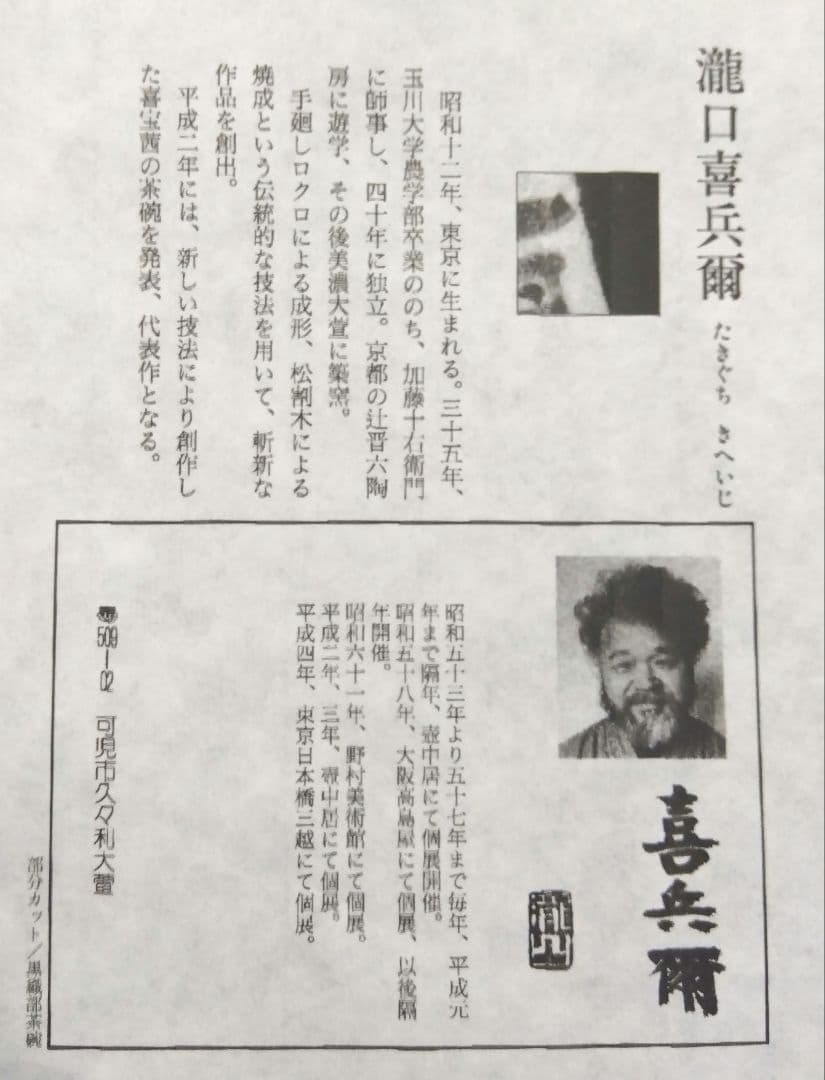 瀧口喜兵爾
たきぐち きへいじ
昭和十二年、東京に生まれる。三十五年、
玉川大学農学部卒業ののち、加藤十右衛門
に師事し、四十年に独立。京都の辻晋六陶
房に遊学、その後美濃大萱に築窯。
手廻しロクロによる成形、松割木による
焼成という伝統的な技法を用いて、斬新な
作品を創出。
平成二年には、新しい技法により創作し
た喜宝茜の茶碗を発表、代表作となる。
喜兵爾
瀧口
昭和五十三年より五十七年まで毎年、平成元
年まで隔年、壺中居にて個展開催。
昭和五十八年、大阪高島屋にて個展、以後隔
年開催。
昭和六十一年、野村美術館にて個展。
平成二年、三年、壺中居にて個展。
平成四年、東京日本橋三越にて個展。
509―02 可児市久々利大萱
部分カット／黒織部茶碗